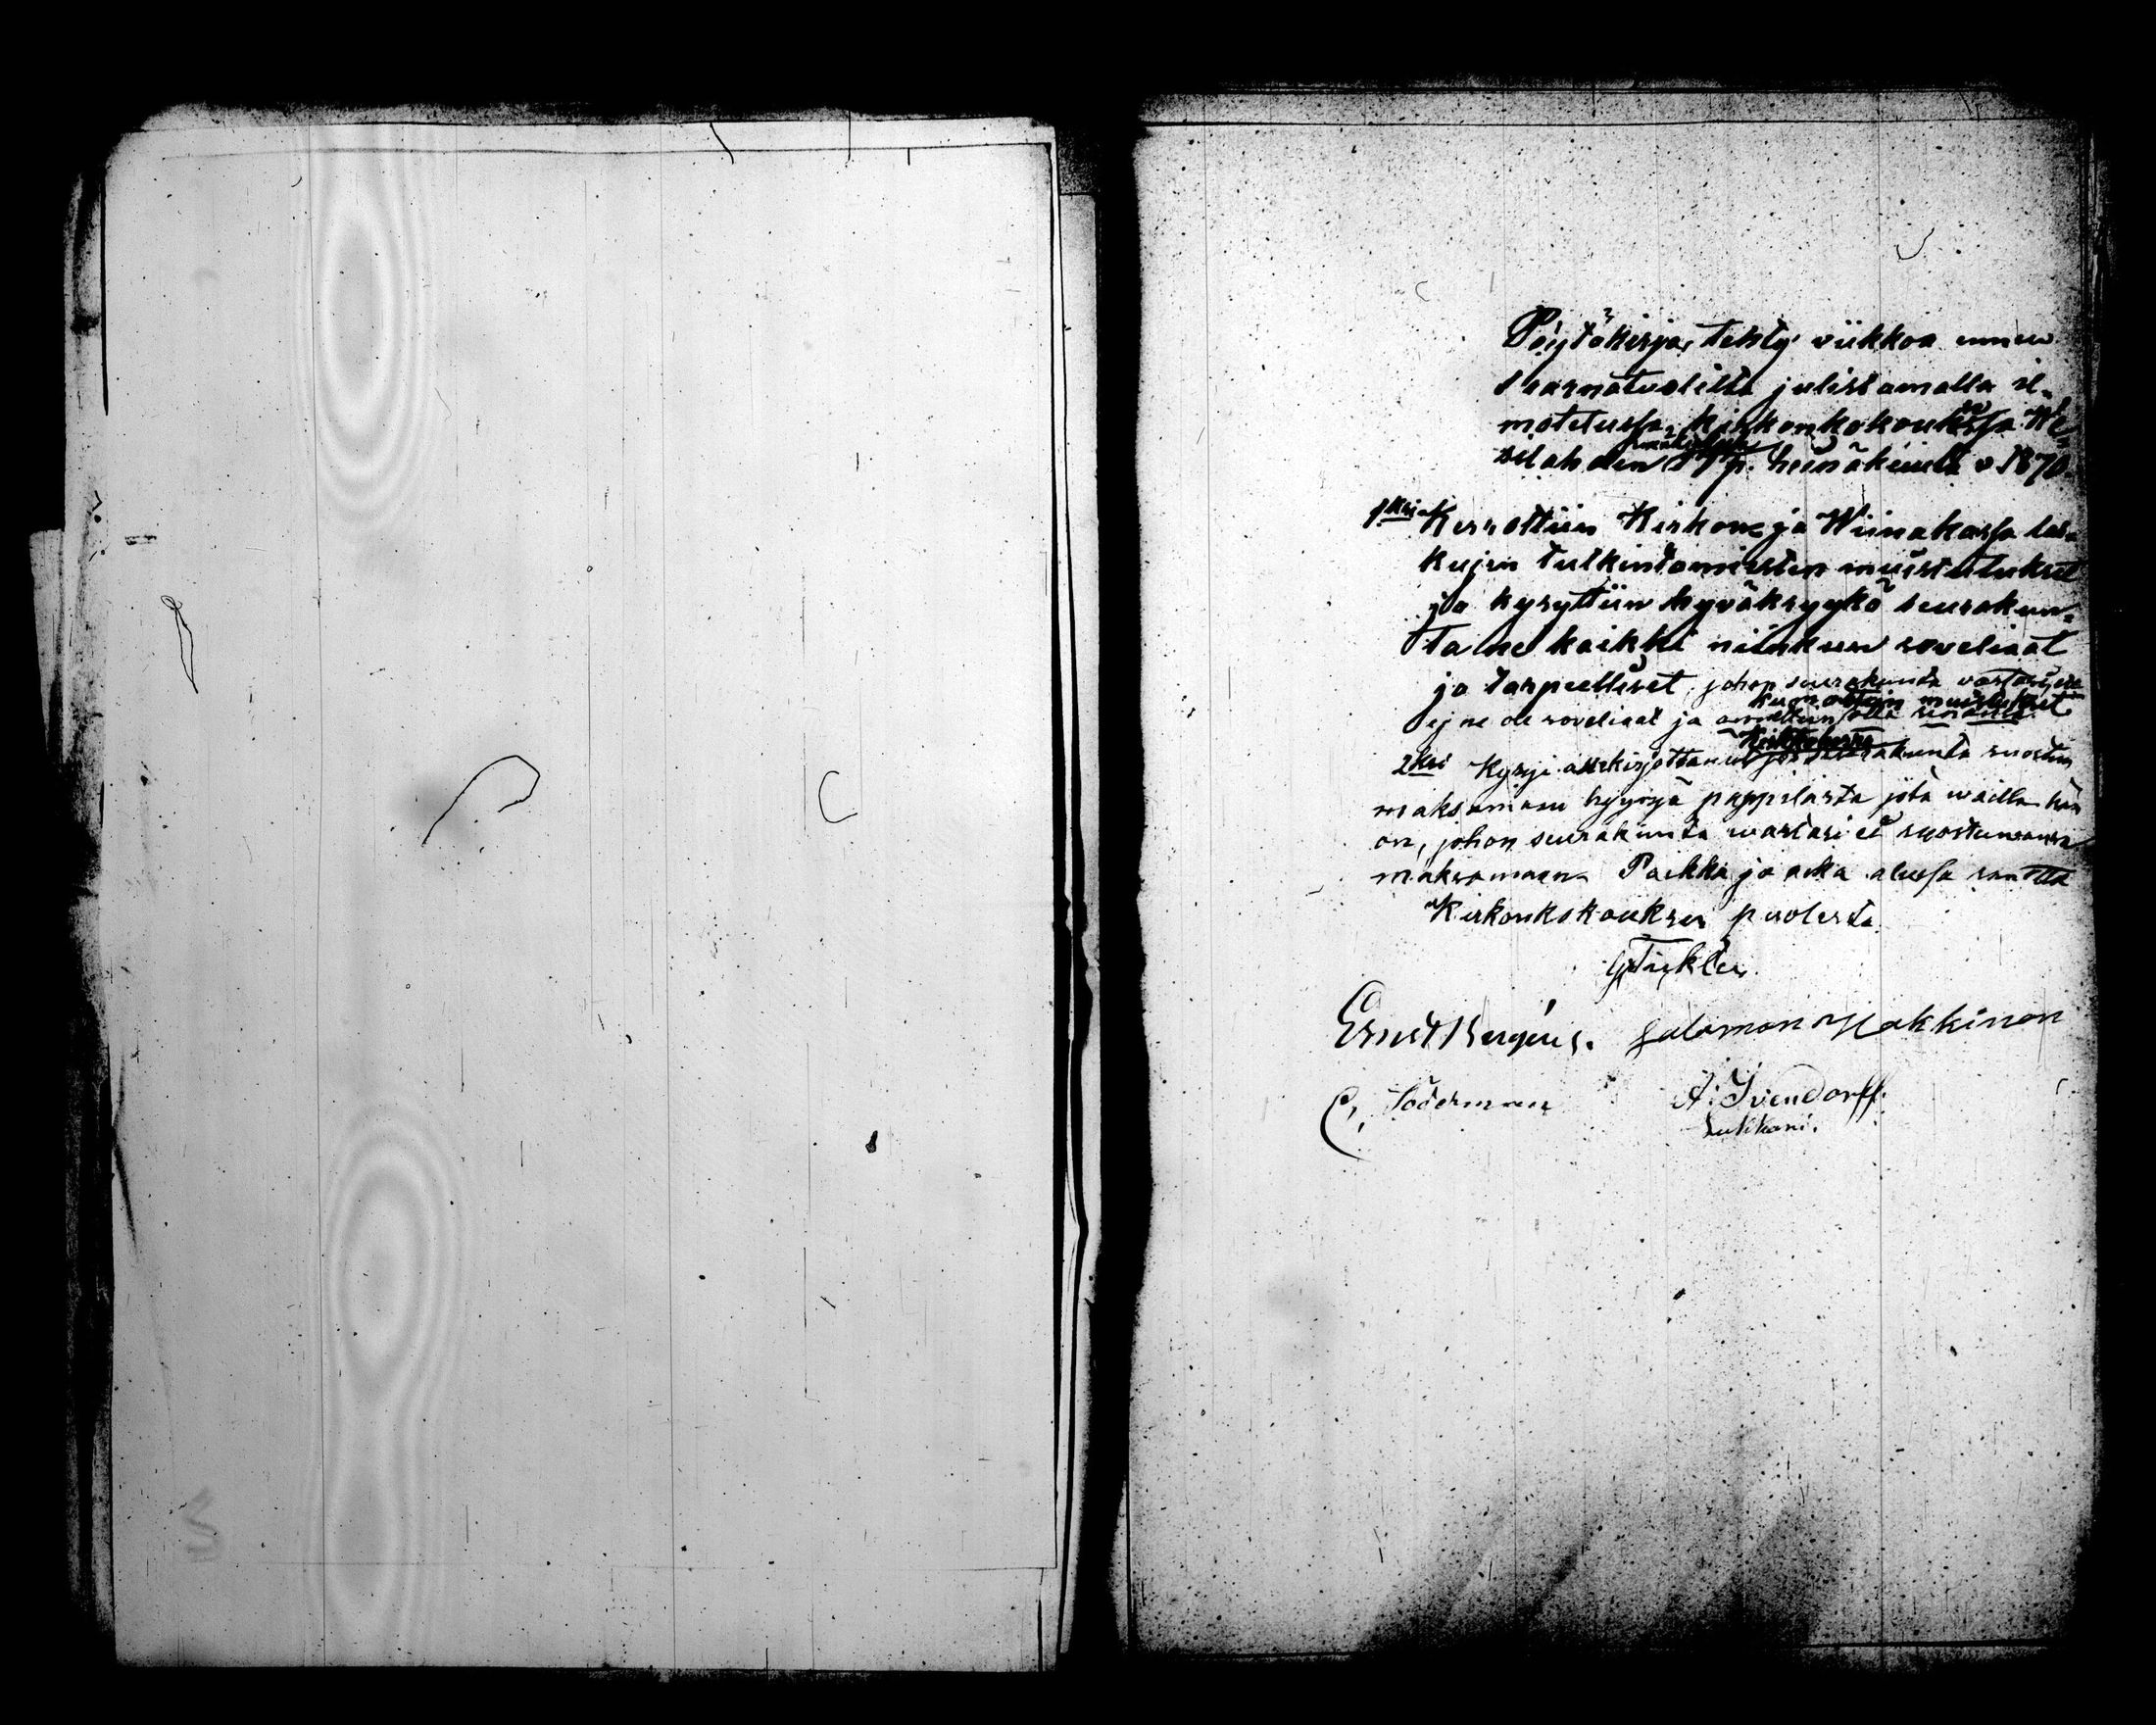 Pöytäkirja, tehty viikkoa ennen
saarnatuolilta julistamalla il-
motetussa, Kirkonkokouksessa We-
silahden p. heinäkuuta v 1870.
1ksi Kerrottiin Kirkon ja Wiinakassa las-
kujen tulkintamiesten muistutukset
ja kysyttiin hyväksyykö seurakun-
ta ne kaikki niinkuin soveliaat
ja tarpeelliset, johon seurakunta vastasi,
ej ne ole soveliaat ja
2ksi Kysyi allekirjottanut jos seurakunta suostuu
maksamaan hyyryä pappilasta jota wailla hän
on, johon seurakunta wastasi ei suostuwansa
maksamaan. Paikka ja aika alussa sanottu
Kirkonkokouksen puolesta
Ernst Bergius. Salomon Hakkinen
C. Söderman A. Ivendorff.
Lukkari.